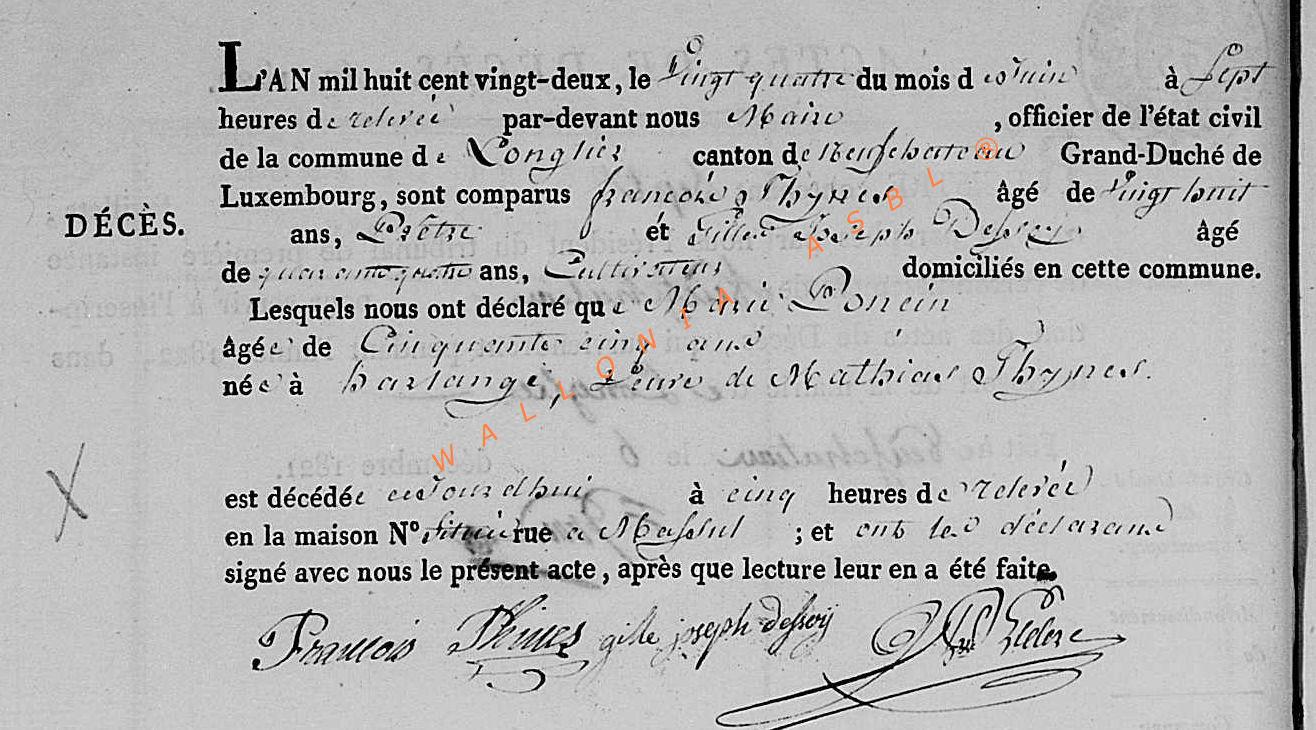 L'AN mil huit cent vingt-deux, le vingt quatre du mois de Juin à Sept
heures de relevée par-devant nous Maire, officier de l'état civil
de la commune de Longlier canton de Neufchateau Grand-Duché de
Luxembourg, sont comparus françois Thynes âgé de vingt huit
DÉCÈS.
ans, Prêtre et Gille Joseph Dessoy âgé
de quarante quatre ans, Cultivateur domiciliés en cette commune.
Lesquels nous ont déclaré que Marie Poncin
âgée de Cinquante cinq ans
née à harlange, veuve de Mathias Thynes.
est décédée aujourd'hui à cinq heures de relevée
en la maison N° située rue a Massul ; et ont les déclarans
signé avec nous le présent acte, après que lecture leur en a été faite.
François Thines gille joseph dessoij Leclerc
WALLONIA ASBL ®